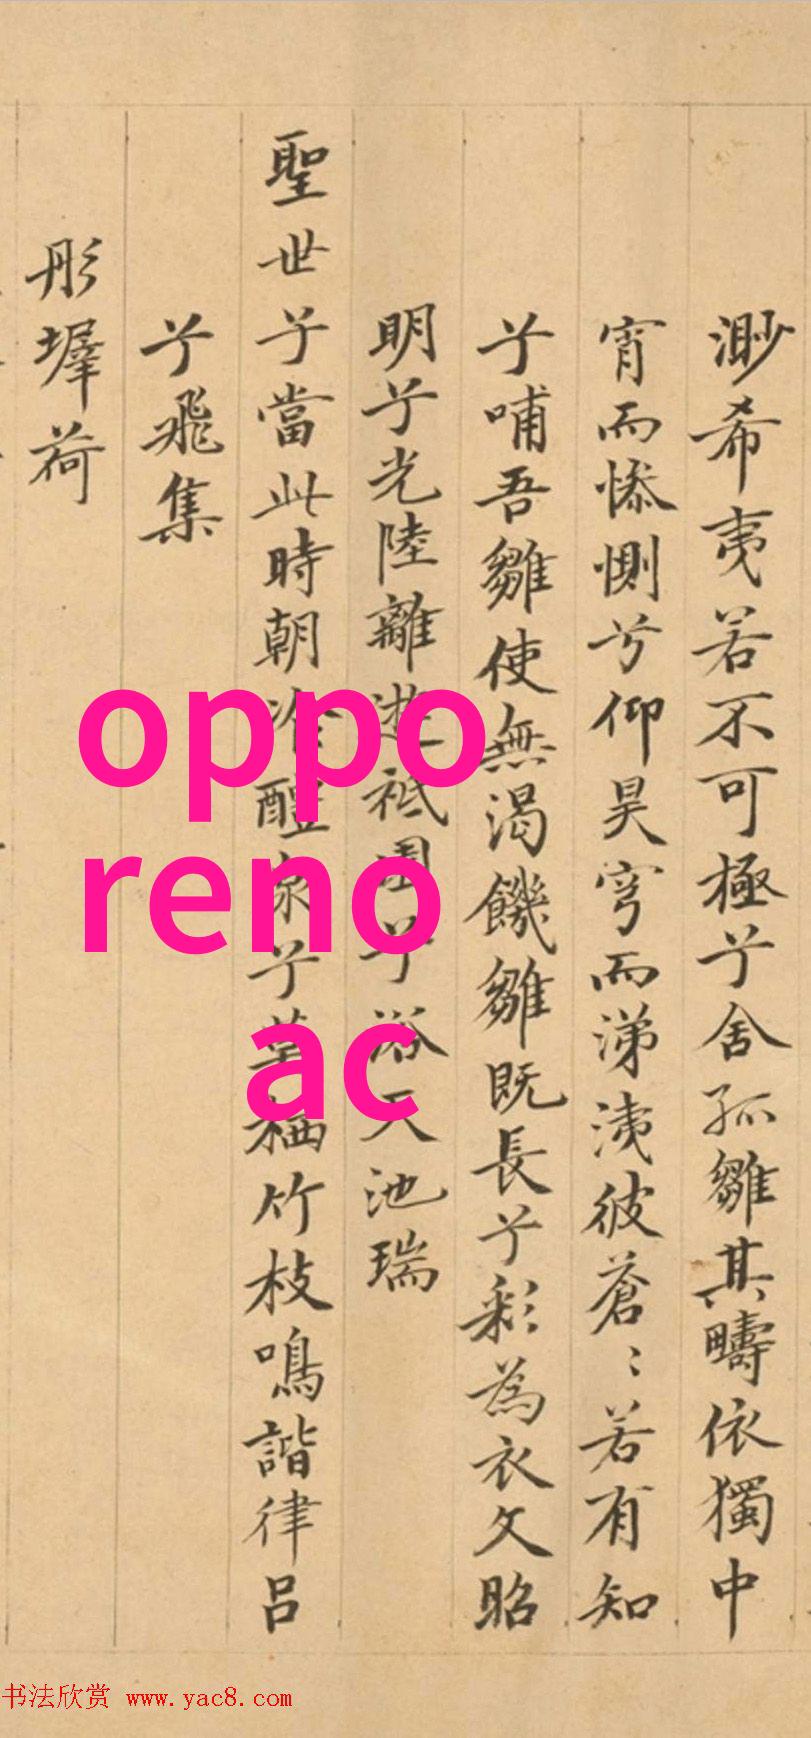 渺希夷若不可極兮舍孤雛其疇依獨中
宵而惨惻兮仰昊穹而涕洟彼蒼〻若有知
兮哺吾雛使無渴饑雛既長兮彩為衣文昭
明兮光陸離遊祗園兮浴天池瑞
聖世兮當此時朝飡醴泉兮莫栖竹枝鳴諧律呂
兮飛集
彤墀荷
oppo
reno
ac
书法欣赏 www.yac8.com